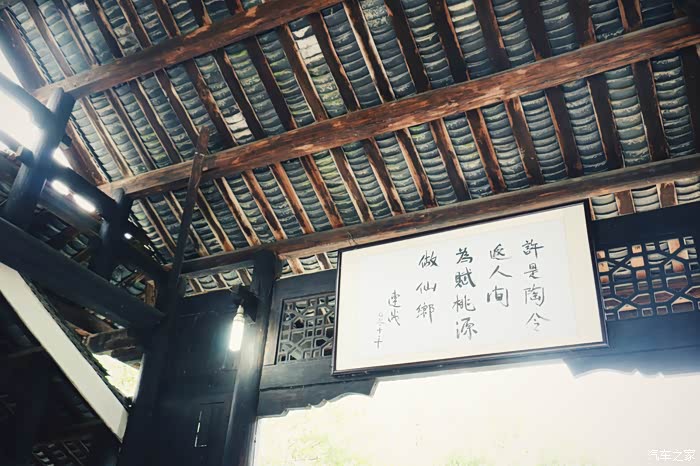 許是陶令
返人间
為賦桃源
做仙鄉
汽车之家